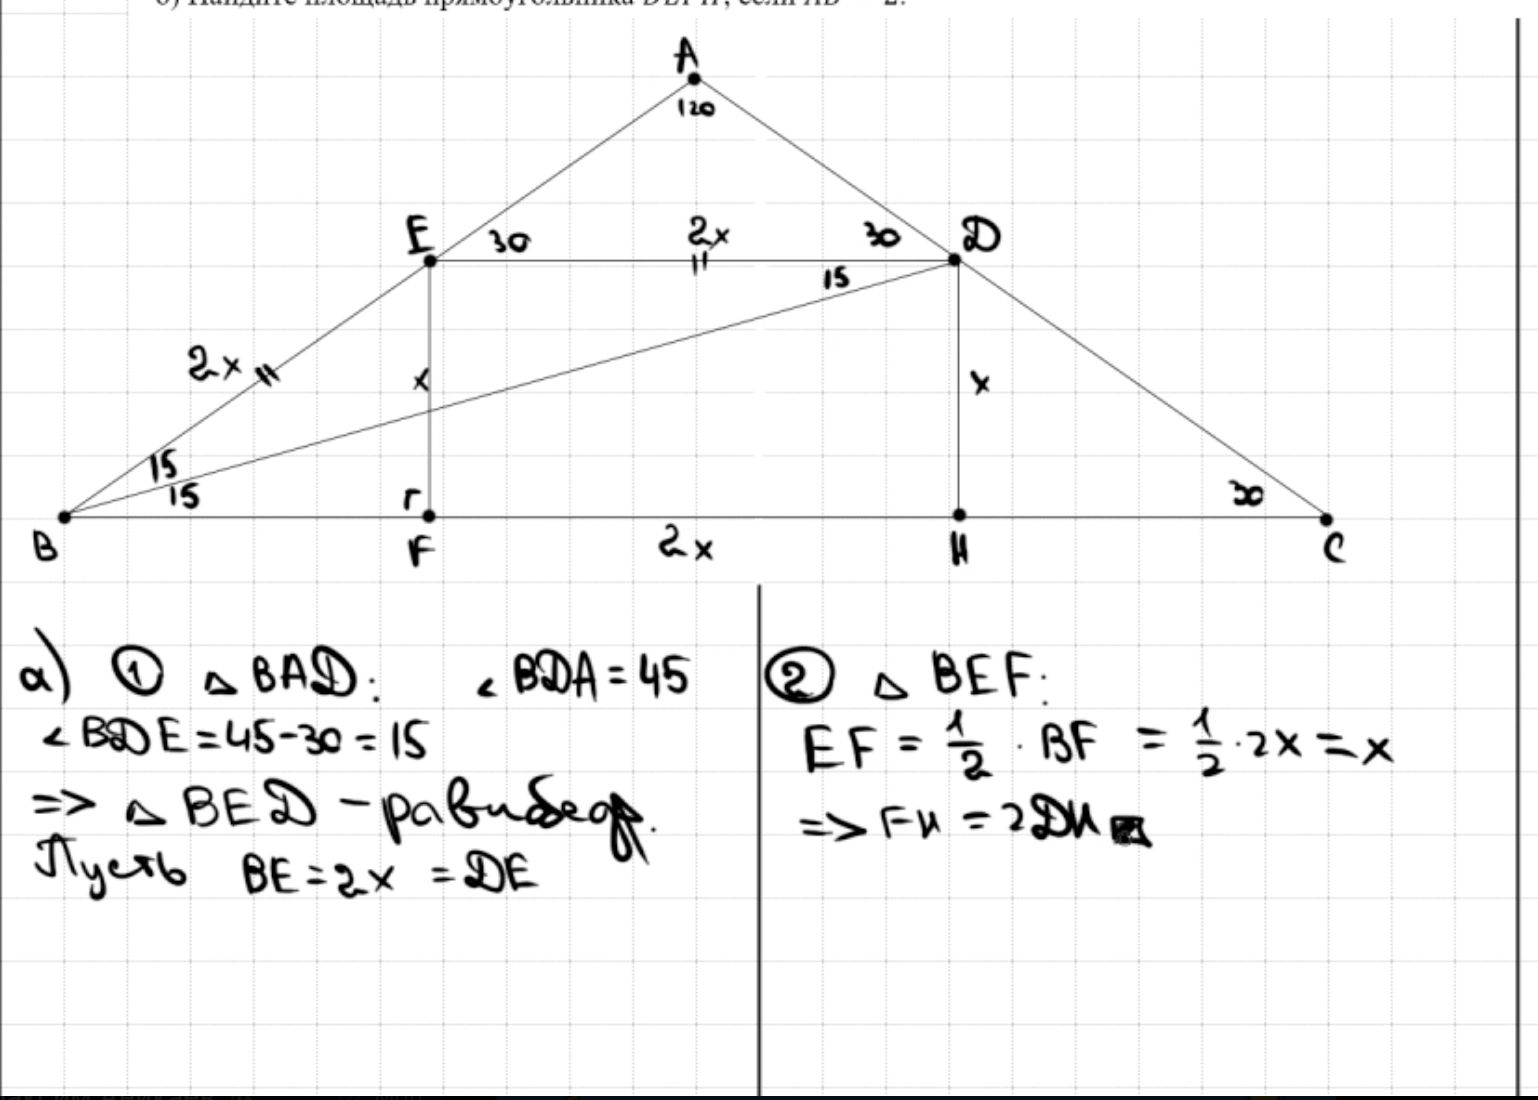 б) Найдите площадь прямоугольника DEFH, если AB = 2.
A
120
E 30 2x 30 D
15
2x x x
15
15 30
B F 2x H C
а) ① △ BAD: ∠ BDA = 45
∠ BDE = 45-30 = 15
=> △ BED - равнобедр.
Пусть BE = 2x = DE
② △ BEF:
EF = 1/2 · BF = 1/2 · 2x = x
=> FH = 2DH